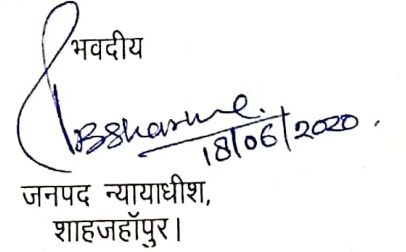 भवदीय
BSharma.
18/06/2020.
जनपद न्यायाधीश,
शाहजहॉपुर।